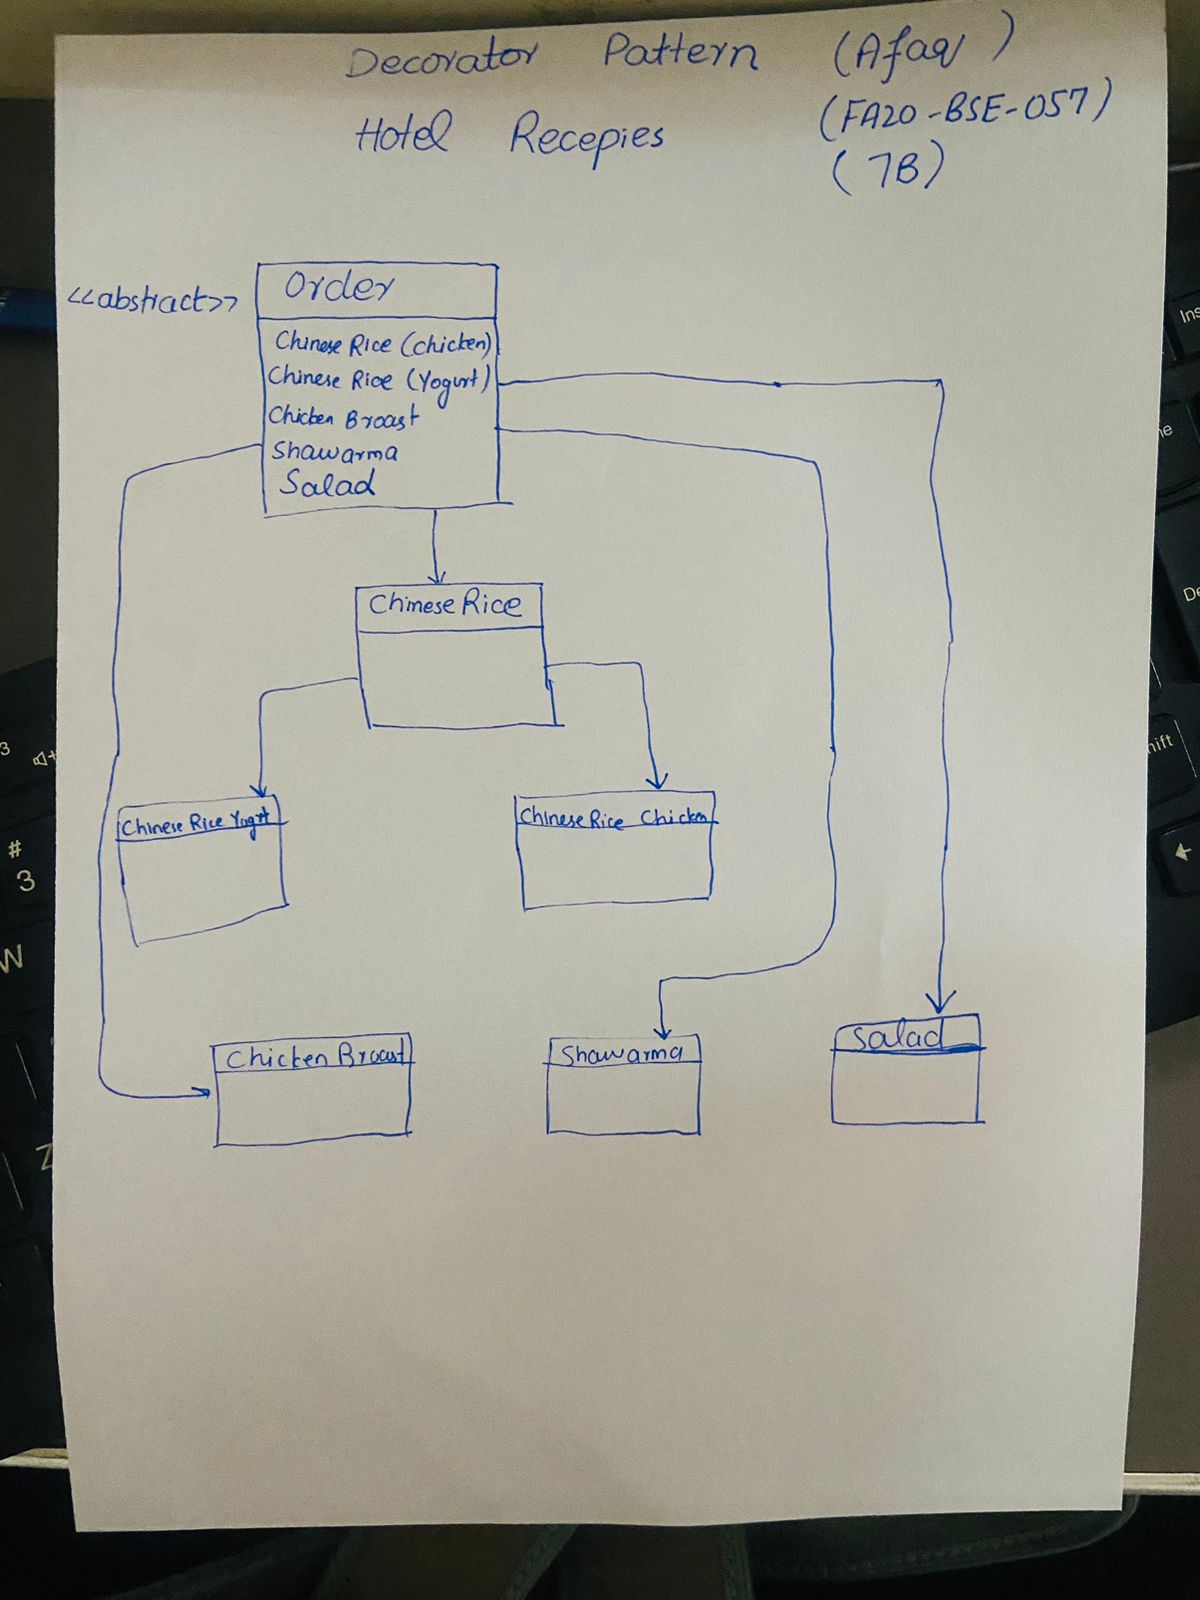 Decorator Pattern (Afaq)
Hotel Recepies (FA20-BSE-057)
(7B)
<<abstract>>
Order
Chinese Rice (chicken)
Chinese Rice (Yogurt)
Chicken Broast
Shawarma
Salad
Chinese Rice
Chinese Rice Yogrt
Chinese Rice Chicken
Chicken Broast
Shawarma
Salad
Ins
De
hift
3
#
3
W
Z